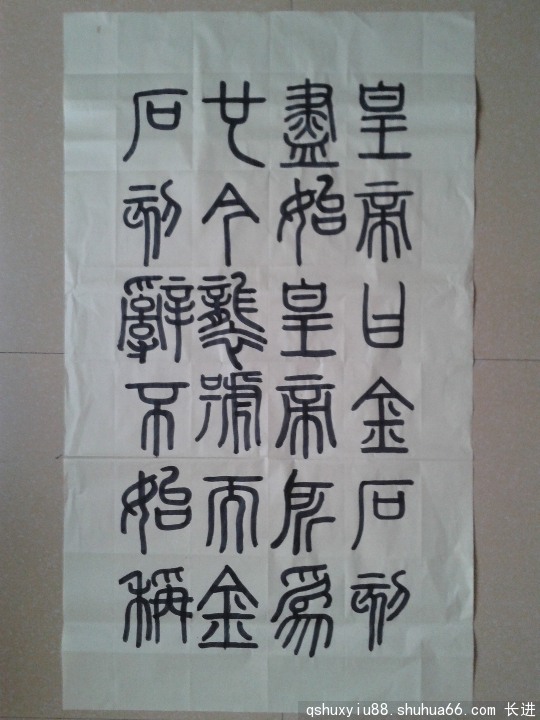 皇帝曰金石刻
盡始皇帝所爲
也今襲號而金
石刻辭不始稱
qshuxyiu88.shuhua66.com 长进